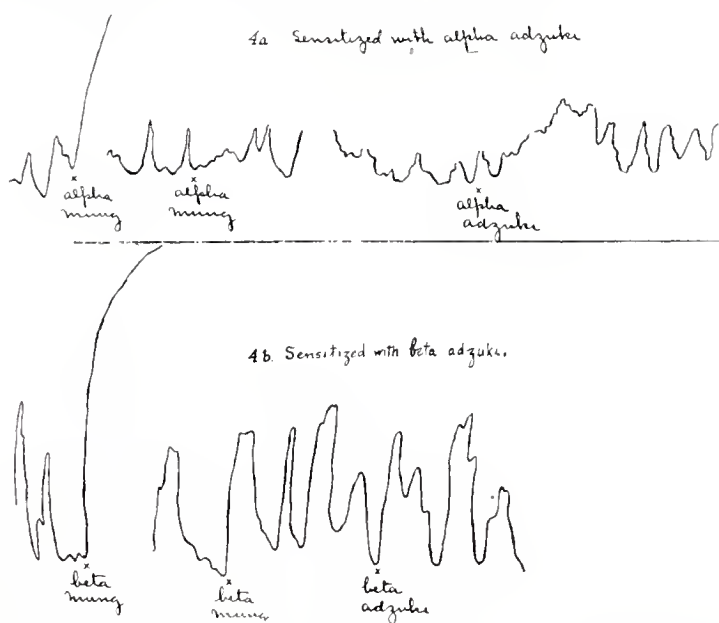 4a Sensitized with alpha adzuki
alpha
mung
alpha
mung
alpha
adzuki
4b. Sensitized with beta adzuki.
beta
mung
beta
mung
beta
adzuki